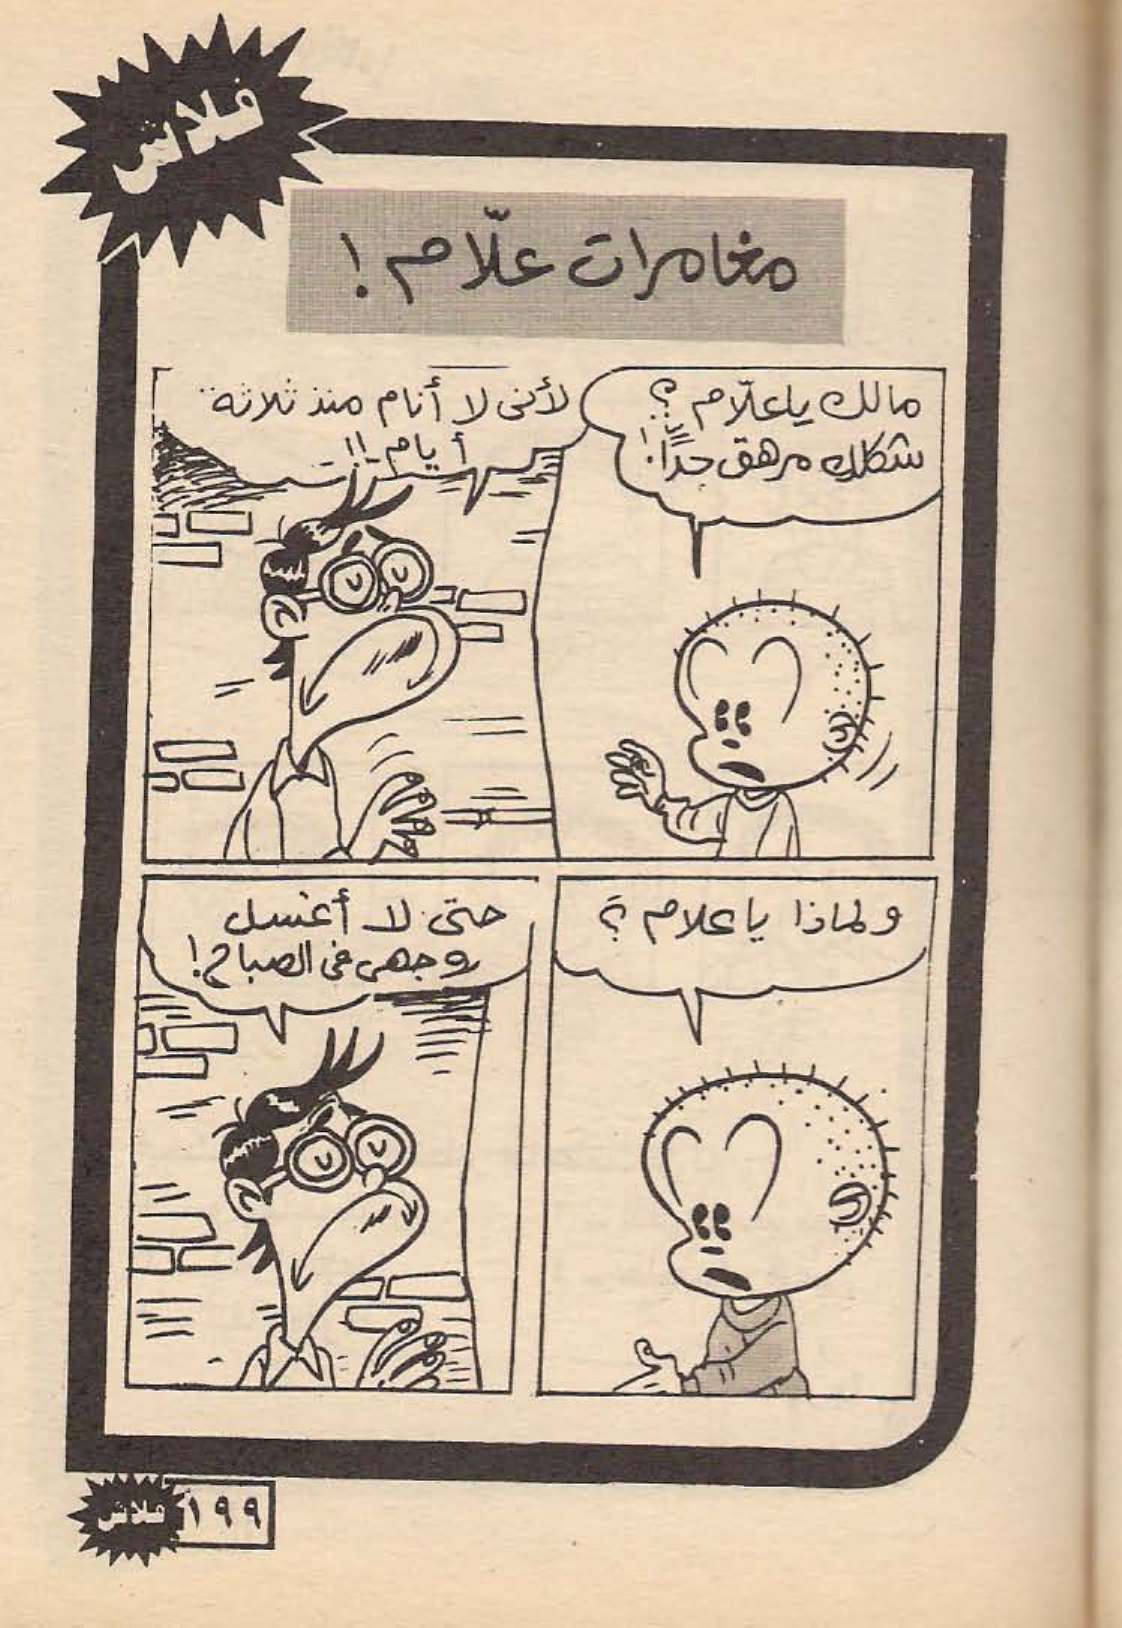 فلاش
مغامرات علّام !
مالك ياعلّام ؟
شكلك مرهق جدًّا !
لأنى لا أنام منذ ثلاثة
أيام !!
ولماذا ياعلام ؟
حتى لا أغسل
وجهى فى الصباح !
١٩٩
فلاش